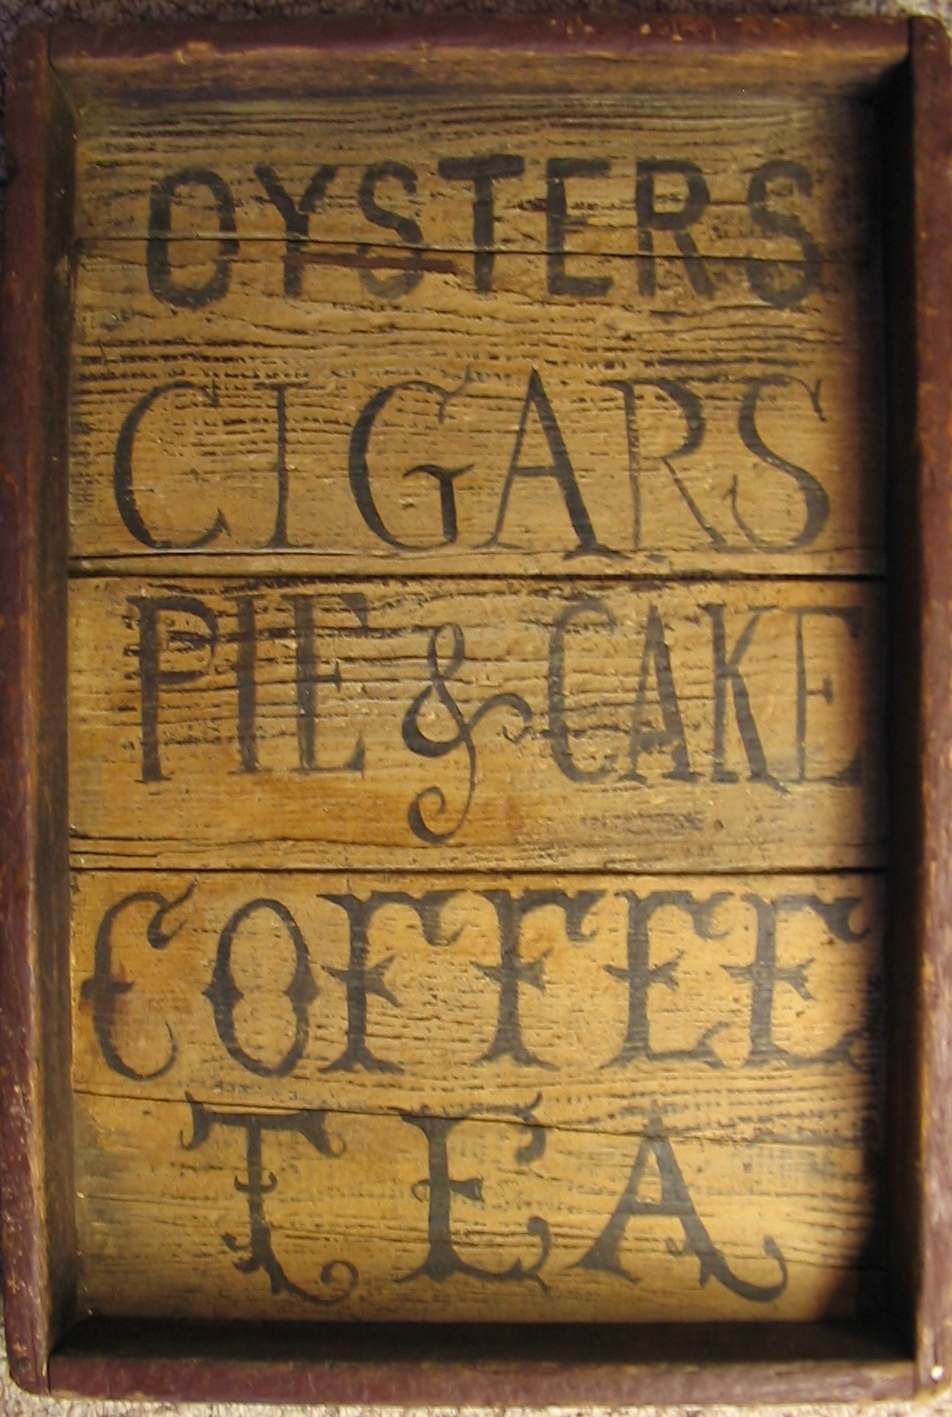 OYSTERS
CIGARS
PIE & CAKE
COFFEE
TEA